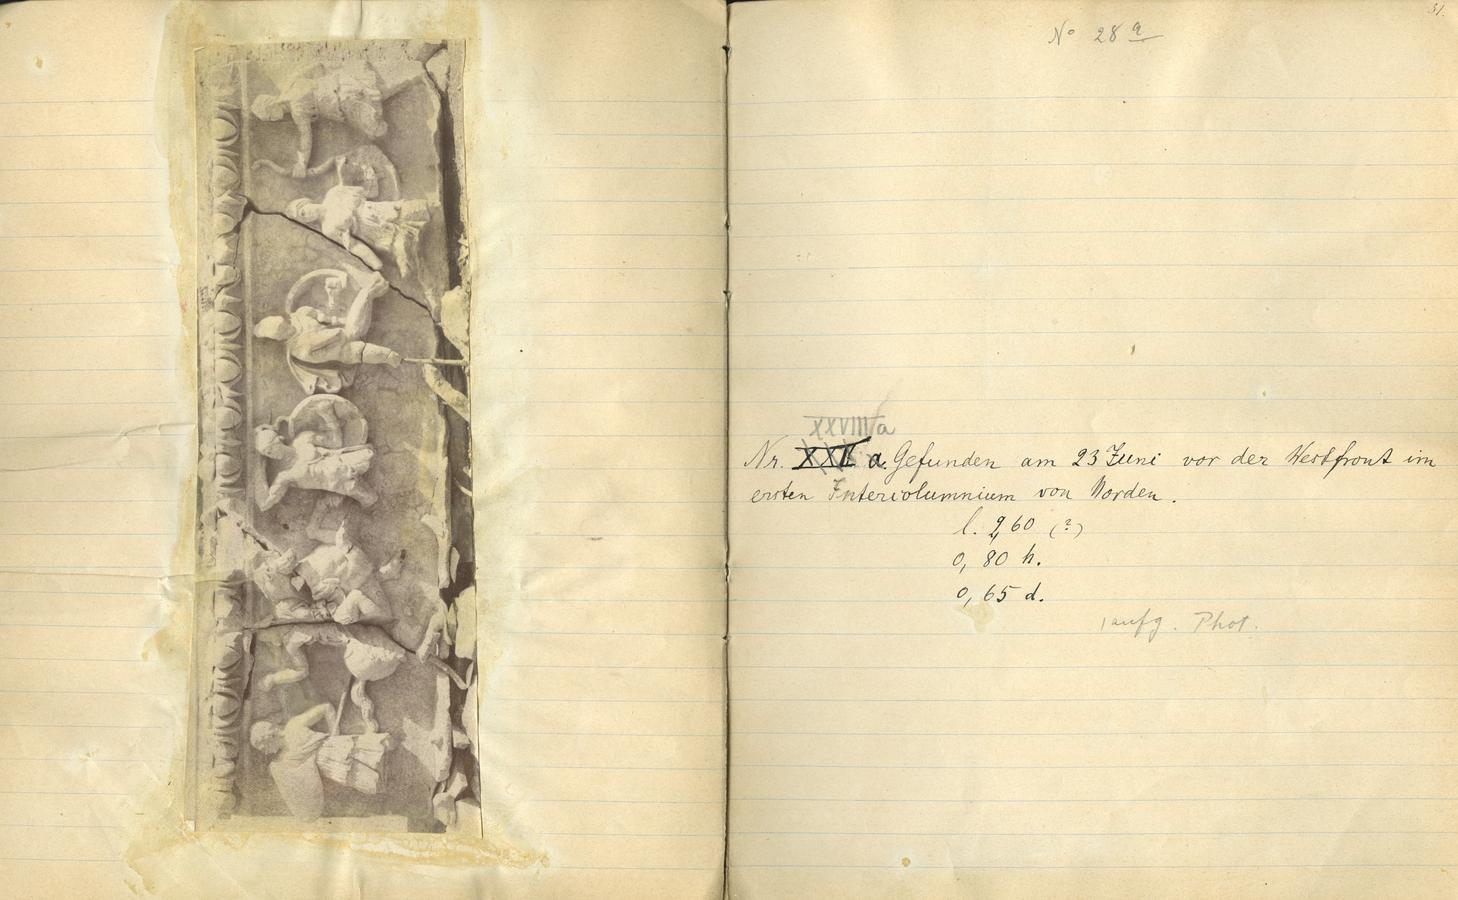 31.
No 28 a
XXVIII a
Nr. XXII a. Gefunden am 23 Juni vor der Westfront im
ersten Intercolumnium von Norden.
l. 2,60 (?)
0,80 h.
0,65 d.
aufg. Phot.